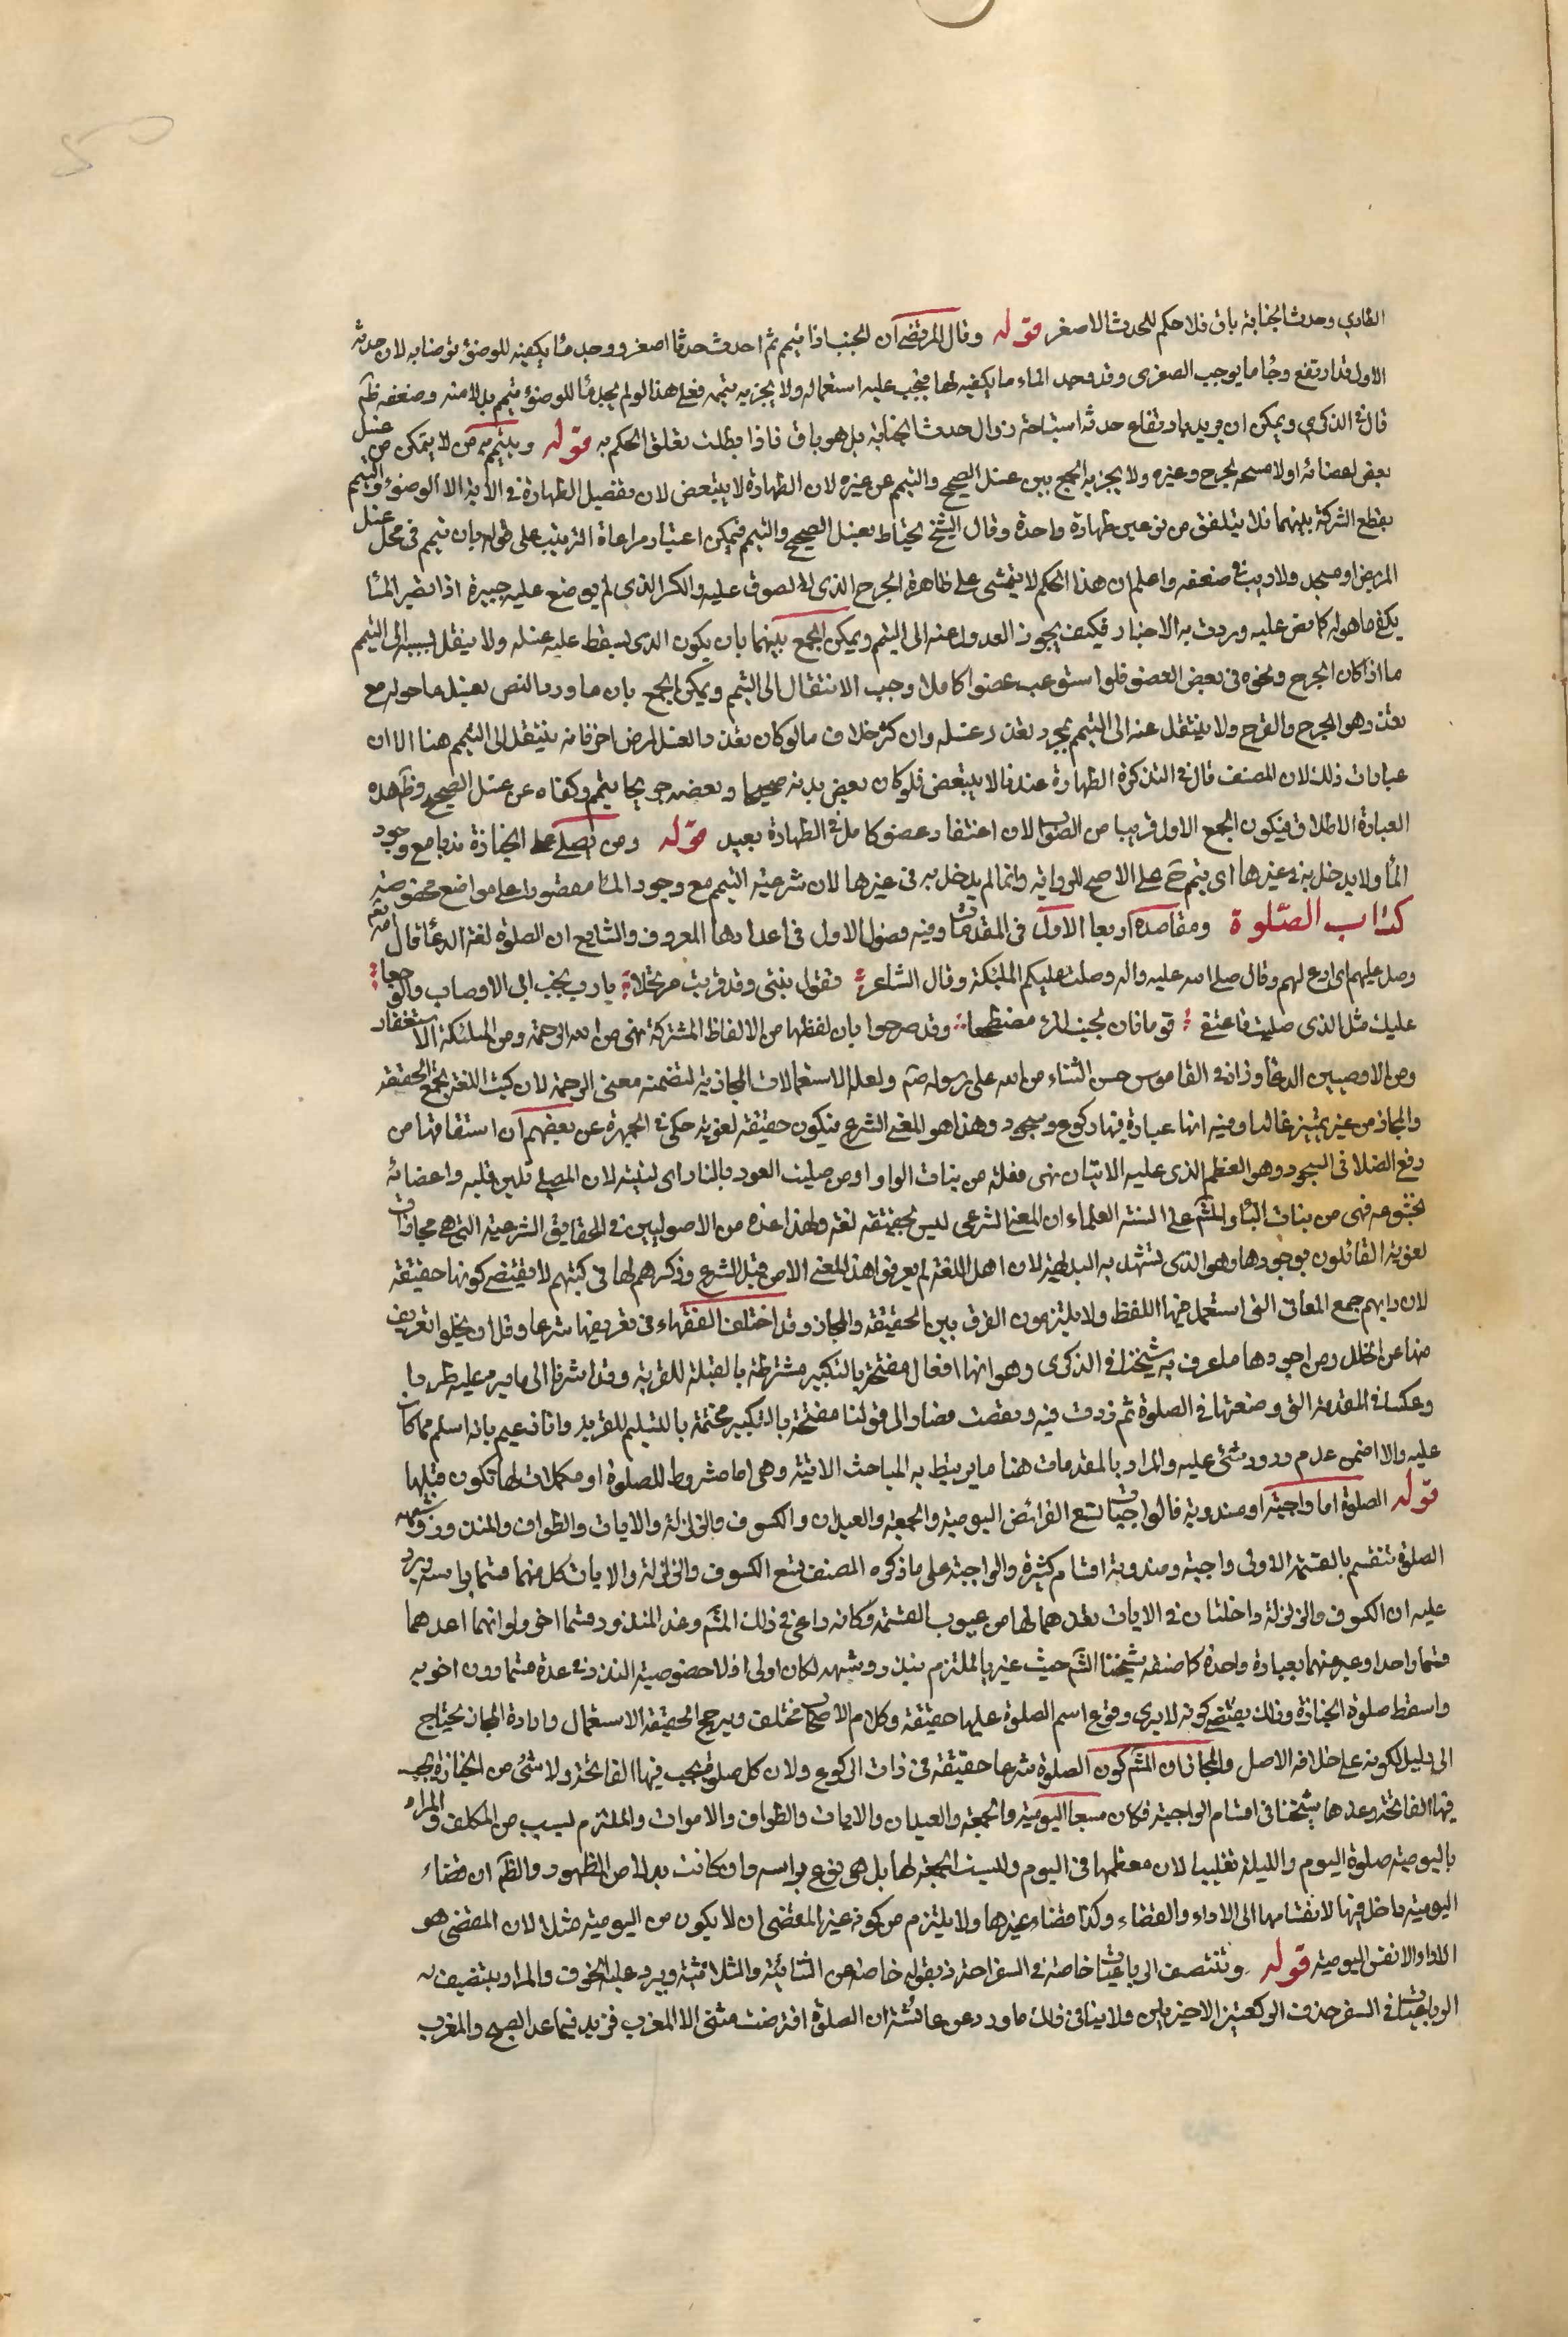 الطاري وحدث الجنابة باق فلا حكم للحدث الاصغر قوله وقال المرتضى ان الجنب اذا تيمم ثم احدث حدثا اصغر ووجد ماء يكفيه للوضوء توضا به لان حدثه
الاول قد ارتفع وجاء ما يوجب الصغرى وقد وجد الماء ما يكفيه لها فيجب عليه استعماله ولا يجزيه تيممه فعلى هذا لو لم يجد ماء للوضوء تيمم بدلا منه وضعفه ظَم
قال في الذكرى ويمكن ان يريد بارتفاع حدثه استباحة زوال حدث الجنابة بل هو باق فاذا بطلت تعلق الحكم به قوله ويتيمم من لا يتمكن من غسل
بعض اعضائه او لا مسحه لجرح وغيره ولا يجزيه الجمع بين غسل الصحيح والتيمم عن غيره لان الطهارة لا يتبعض لان تفصيل الطهارة في الاية الا الوضوء والتيمم
يقطع الشركة بينهما فلا يتلفق من نوعين طهارة واحدة وقال الشيخ يحتاط بغسل الصحيح والتيمم فيمكن اعتبار مراعاة الترتيب على قوله بان تيمم في محل غسل
المريض او مسحه ولا ريب في ضعفه واعلم ان هذا الحكم لا يتمشى على ظاهره الجرح الذي لا لصوق عليه والكسر الذي لم يوضع عليه جبيرة اذا تضر الماء
يكفي ما حوله كما نص عليه وردت به الاخبار فكيف يجوز العدول عنه الى التيمم ويمكن الجمع بينهما بان يكون الذي لسقط عليه غسله ولا ينتقل بسببه الى التيمم
ما اذا كان الجرح ونحوه في بعض العضو فلو استوعب عضوا كاملا وجب الانتقال الى التيمم ويمكن الجمع بان ما ورد بالنص بغسل ما حوله مع
تعذره وهو الجرح والقرح ولا ينتقل عنه الى التيمم بمجرد تعذر غسله وان كثر خلاف ما لو كان تعذر الغسل لمرض اخر فانه ينتقل الى التيمم هنا الا ان
عبارات ذلك لان المصنف قال في التذكرة الطهارة عندنا لا يتبعض فلو كان بعض بدنه صحيحا وبعضه جريحا تيمم وكفاه عن غسل الصحيح وظَم هذه
العبارة الاطلاق فيكون الجمع الاول قريبا من الصواب الا ان اغتفار عضو كامل في الطهارة بعيد قوله ومن يصلي على الجنازة ندبا مع وجود
الماء ولا يدخل به في غيرها اي تيمم حَ على الاصح للرواية وانما لم يدخل به في غيرها لان شرعية التيمم مع وجود الماء مقصور على مواضع مخصوصة
كتاب الصلوة ومقاصده اربعة الاول في المقدمات وفيه فصول الاول في اعدادها المعروف والشايع ان الصلوة لغة الدعاء قال الله تعَ
وصل عليهم اي ادع لهم وقال صلى الله عليه واله وصلت عليكم الملئكة وقال الشاعر تقول بنتي وقد قربت مرتحلا يا رب جنب ابي الاوصاب والوجعا
عليك مثل الذي صليت فاغتمضي يوما فان لجنب المرء مضطجعا وقد صرحوا بان لفظها من الالفاظ المشتركة فهي من الله الرحمة ومن الملئكة الاستغفار
ومن الادميين الدعاء وزاد في القاموس حسن الثناء من الله على رسوله صَم ولعله الاستعمالات المجازية لتضمنه معنى الرحمة لان كتب اللغة تجمع الحقيقة
والمجاز من غير تمييز غالبا وفيه انها عبادة فيها ركوع وسجود وهذا هو المعنى الشرعي فيكون حقيقة لغوية حكي في الجمهرة عن بعضهم ان اشتقاقها من
رفع الصلا في السجود وهو العظم الذي عليه الاليتان فهي فعلة من بنات الواو او من صليت العود بالنار اي لينته لان المصلي يلين قلبه واعضائه
بخشوعه فهي من بنات الياء والمشَم على السنة العلماء ان المعنى الشرعي ليس بحقيقة لغة ولهذا عده من الاصوليين في الحقايق الشرعية التي هي مجازات
لغوية القائلون بوجودها وهو الذي تشهد به البديهة لان اهل اللغة لم يعرفوا هذا المعنى الا من قبل الشرع وذكرهم لها في كتبهم لا يقتضي كونها حقيقة
لان دابهم جمع المعاني التي استعمل فيها اللفظ ولا يلتزمون الفرق بين الحقيقة والمجاز وقد اختلف الفقهاء في تعريفها شرعا وقل ان يخلوا تعريف
منها عن الخلل ومن اجودها ما عرف به شيخنا في الذكرى وهو انها افعال مفتتحة بالتكبير مشترطة بالقبلة للقربة وقد اشرنا الى ما يرد عليه طردا
وعكسا في المقدمة التي وضعتها في الصلوة ثم زدت فيه ونقصت فصار الى قولنا مفتتحة بالتكبير مختتمة بالتسليم للقربة وانا زعيم بانه اسلم مما كان
عليه والا اضمن عدم ورود شئ عليه والمراد بالمقدمات هنا ما يرتبط به المباحث الاتية وهي اما مشروط للصلوة او مكملات لها تكون قبلها
قوله الصلوة اما واجبة او مندوبة فالواجبات تسع الفرائض اليومية والجمعة والعيدان والكسوف والزلزلة والايات والطواف والمنذور وشبهه
الصلوة تنقسم بالقسمة الاولى واجبة ومندوبة اقسام كثيرة والواجبة على ما ذكره المصنف تسع الكسوف والزلزلة والايات كل منهما قسما براسه ويرد
عليه ان الكسوف والزلزلة داخلتان في الايات بعدهما لها من عيوب القسمة وكانه راعى في ذلك المشَم وعد المنذور قسما اخر ولو انهما اعدهما
قسما واحدا وعبر عنهما بعبارة واحدة كما صنفه شيخنا الشَم حيث عبر بالملتزم بنذر وشبهه لكان اولى اذ لا خصوصية للنذر في عدة قسما دون اخويه
واسقط صلوة الجنازة وذلك يقتضي كونه لا يرى وقوع اسم الصلوة عليها حقيقة وكلام الاصحاب مختلف ويرجح الحقيقة الاستعمال وارادة المجاز يحتاج
الى دليل لكونه على خلافه الاصل والمجاز ان المشَم كون الصلوة شرعا حقيقة في ذات الركوع ولان كل صلوة يجب فيها الفاتحة ولا شئ من الجنازة يجب
فيها الفاتحة وعدها شيخنا في اقسام الواجبة فكان سبعا اليومية والجمعة والعيدان والايات والطواف والاموات والملتزم لسبب من المكلف والمراد
باليومية صلوة اليوم والليلة تغليبا لان معظمها في اليوم وليست الجمعة لها بل هي نوع براسه وان كانت بدلا من الظهر والظَم ان قضاء
اليومية داخل فيها لانقسامها الى الاداء والقضاء وكذا قضاء غيرها ولا يلتزم من كونه غير المقضى ان لا يكون من اليومية مثلا لان المقضي هو
الاداء لا نفس اليومية قوله وتنتصف الرباعيات خاصة في السفر احترز بقوله خاصة عن الثنائية والثلاثية ويرد عليه الخوف والمراد بتنصيف
الرباعيات في السفر حذف الركعتين الاخيرتين ولا ينافي ذلك ما ورد عن عائشة ان الصلوة افترضت مثنى الا المغرب فزيد فيما عدا الصبح والمغرب